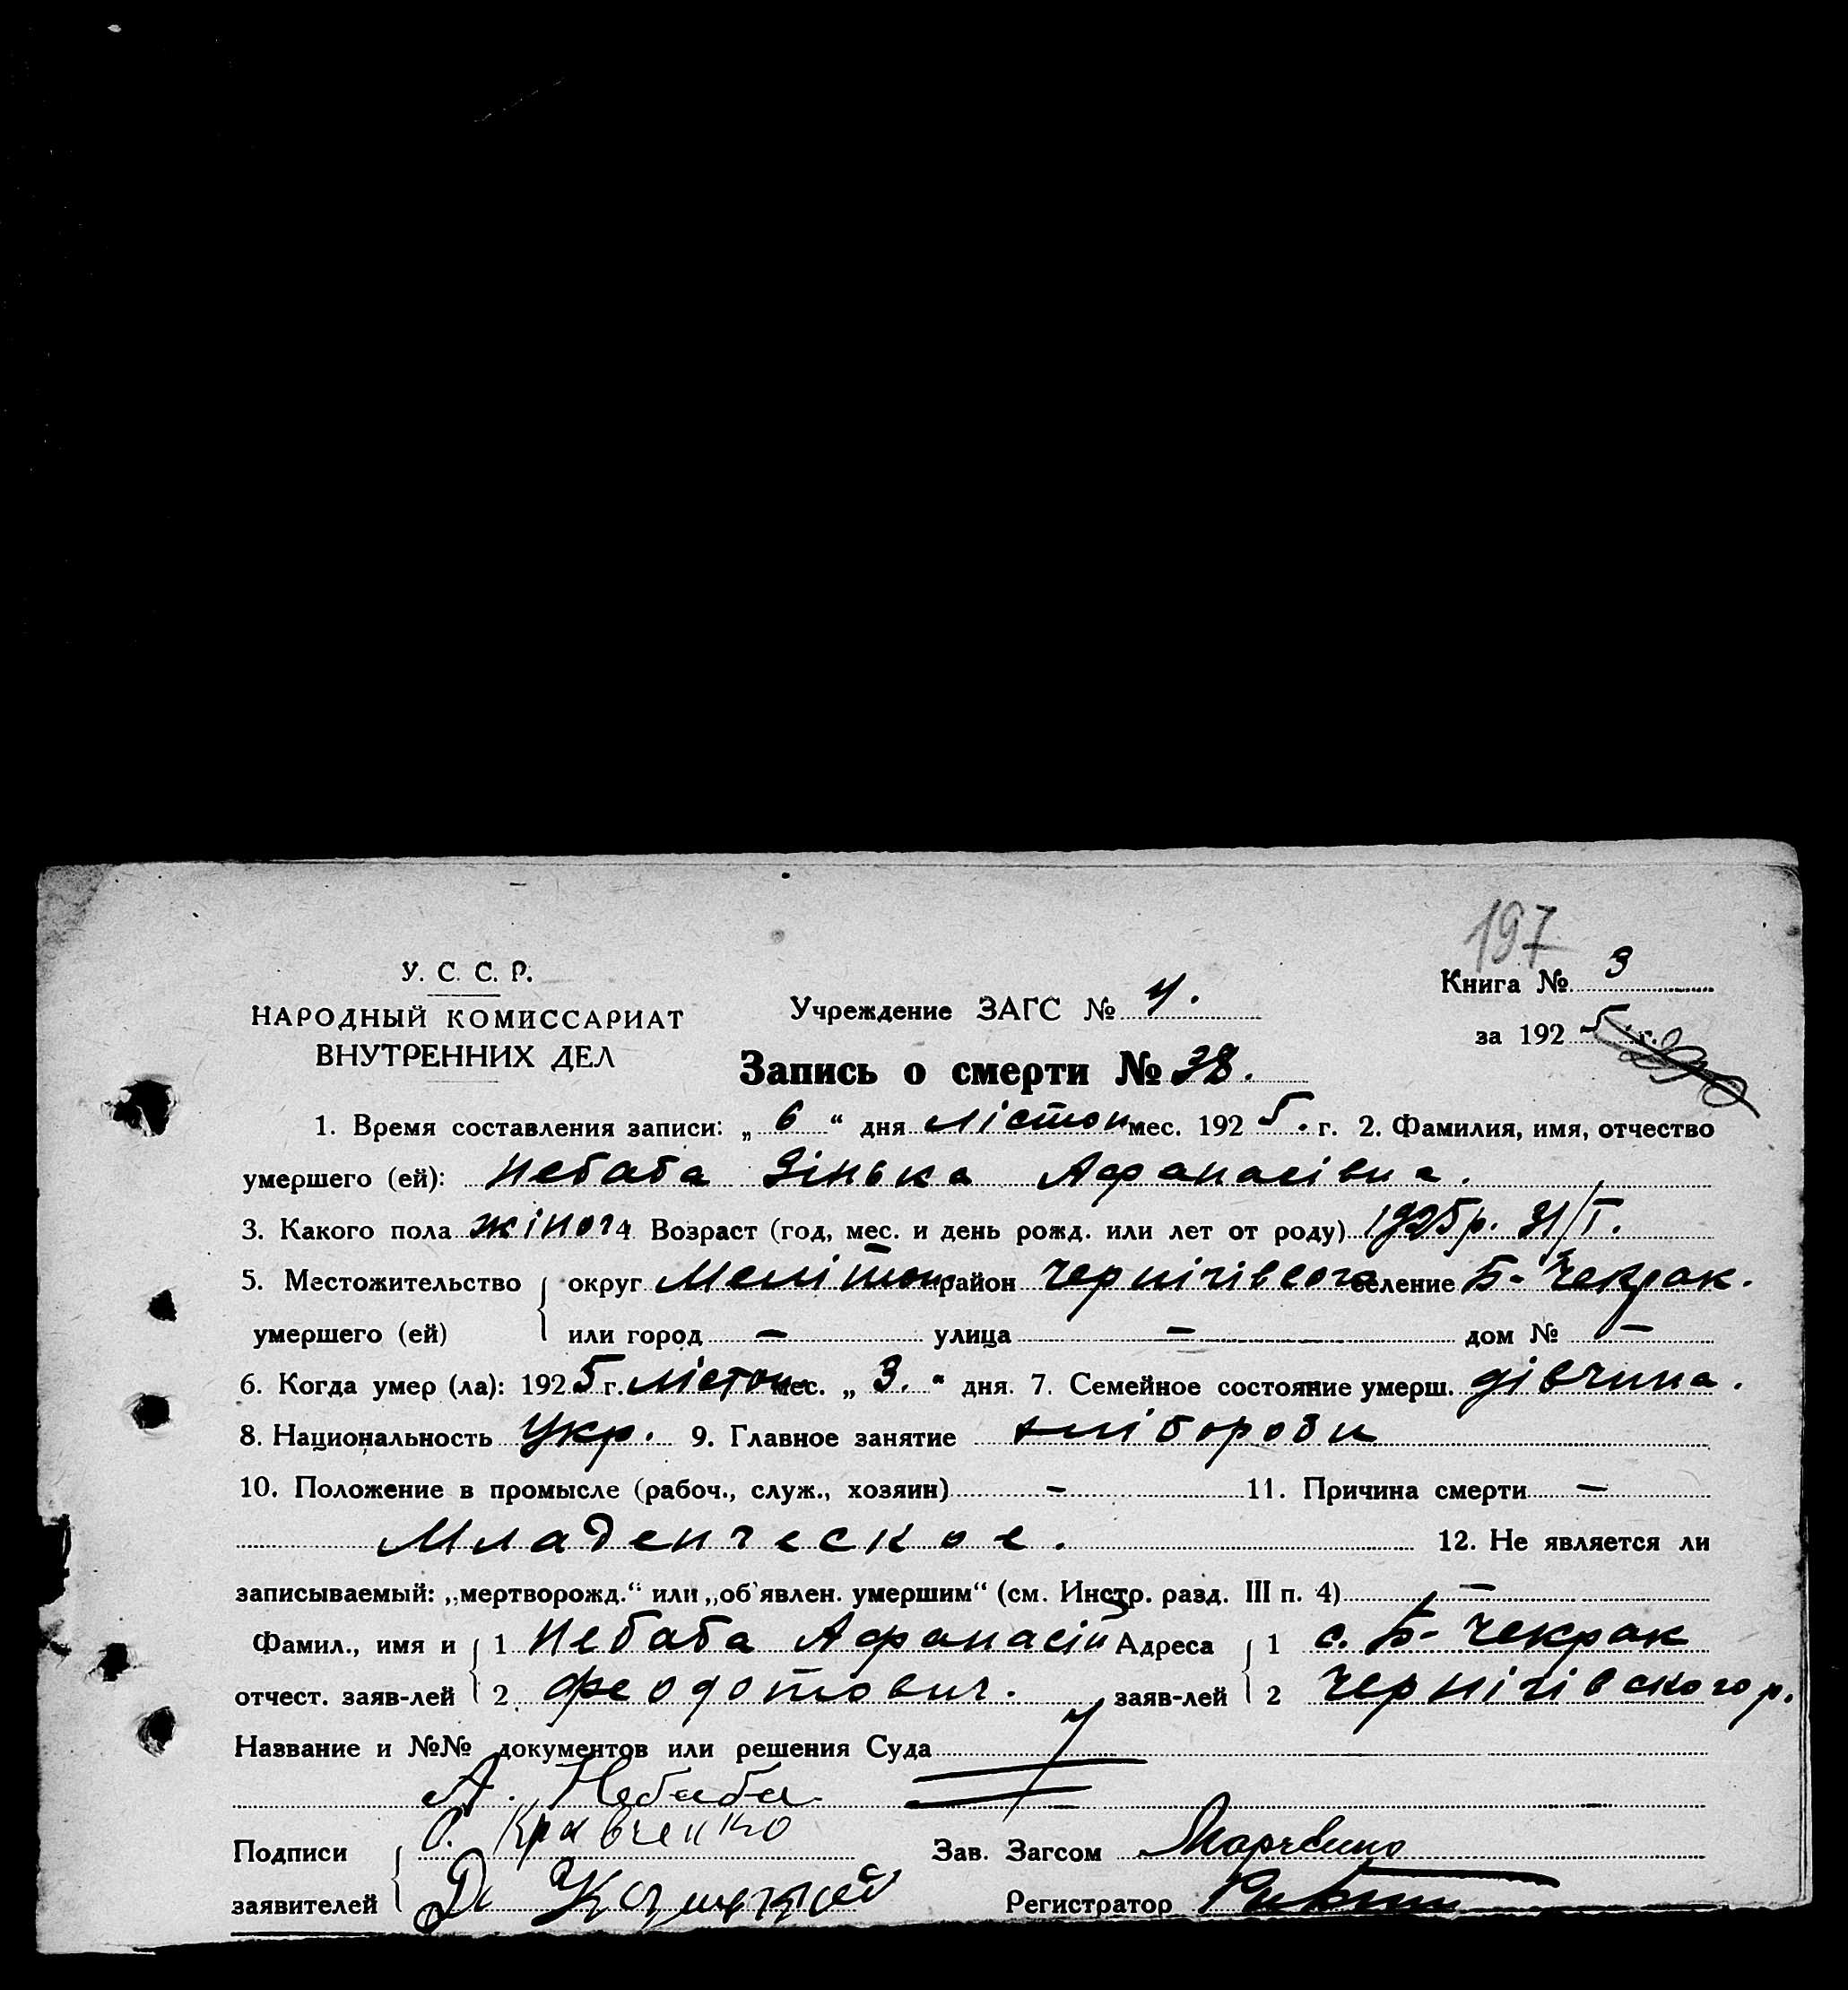 197
У. С. С. Р.
НАРОДНЫЙ КОМИССАРИАТ
ВНУТРЕННИХ ДЕЛ
Учреждение ЗАГС № 4.
Книга № 3
за 192 5 г.
Запись о смерти № 38.
1. Время составления записи: „ 6 “ дня лістоп мес. 192 5. г. 2. Фамилия, имя, отчество
умершего (ей): Небаба Зінька Афанасівна.
3. Какого пола жіноч 4. Возраст (год, мес. и день рожд. или лет от роду) 1925 р.
5. Местожительство округ Мелітоп. район Чернігівсог селение Б-Чекрак.
умершего (ей) или город — улица — дом № —
6. Когда умер (ла): 192 5 г. лістоп. мес. „ 3. “ дня. 7. Семейное состояние умерш. дівчина.
8. Национальность Укр. 9. Главное занятие хлібороби
10. Положение в промысле (рабоч., служ., хозяин) — 11. Причина смерти —
Младенческое. 12. Не является ли
записываемый: „мертворожд.“ или „об'явлен. умершим“ (см. Инстр. разд. III п. 4) —
Фамил., имя и 1 Небаба Афанасій Адреса 1 с. Б-Чекрак
отчест. заяв-лей 2 Феодотович. заяв-лей 2 Чернігівского р.
Название и №№ документов или решения Суда
А. Небаба
Подписи Кравченко Зав. Загсом
заявителей Регистратор